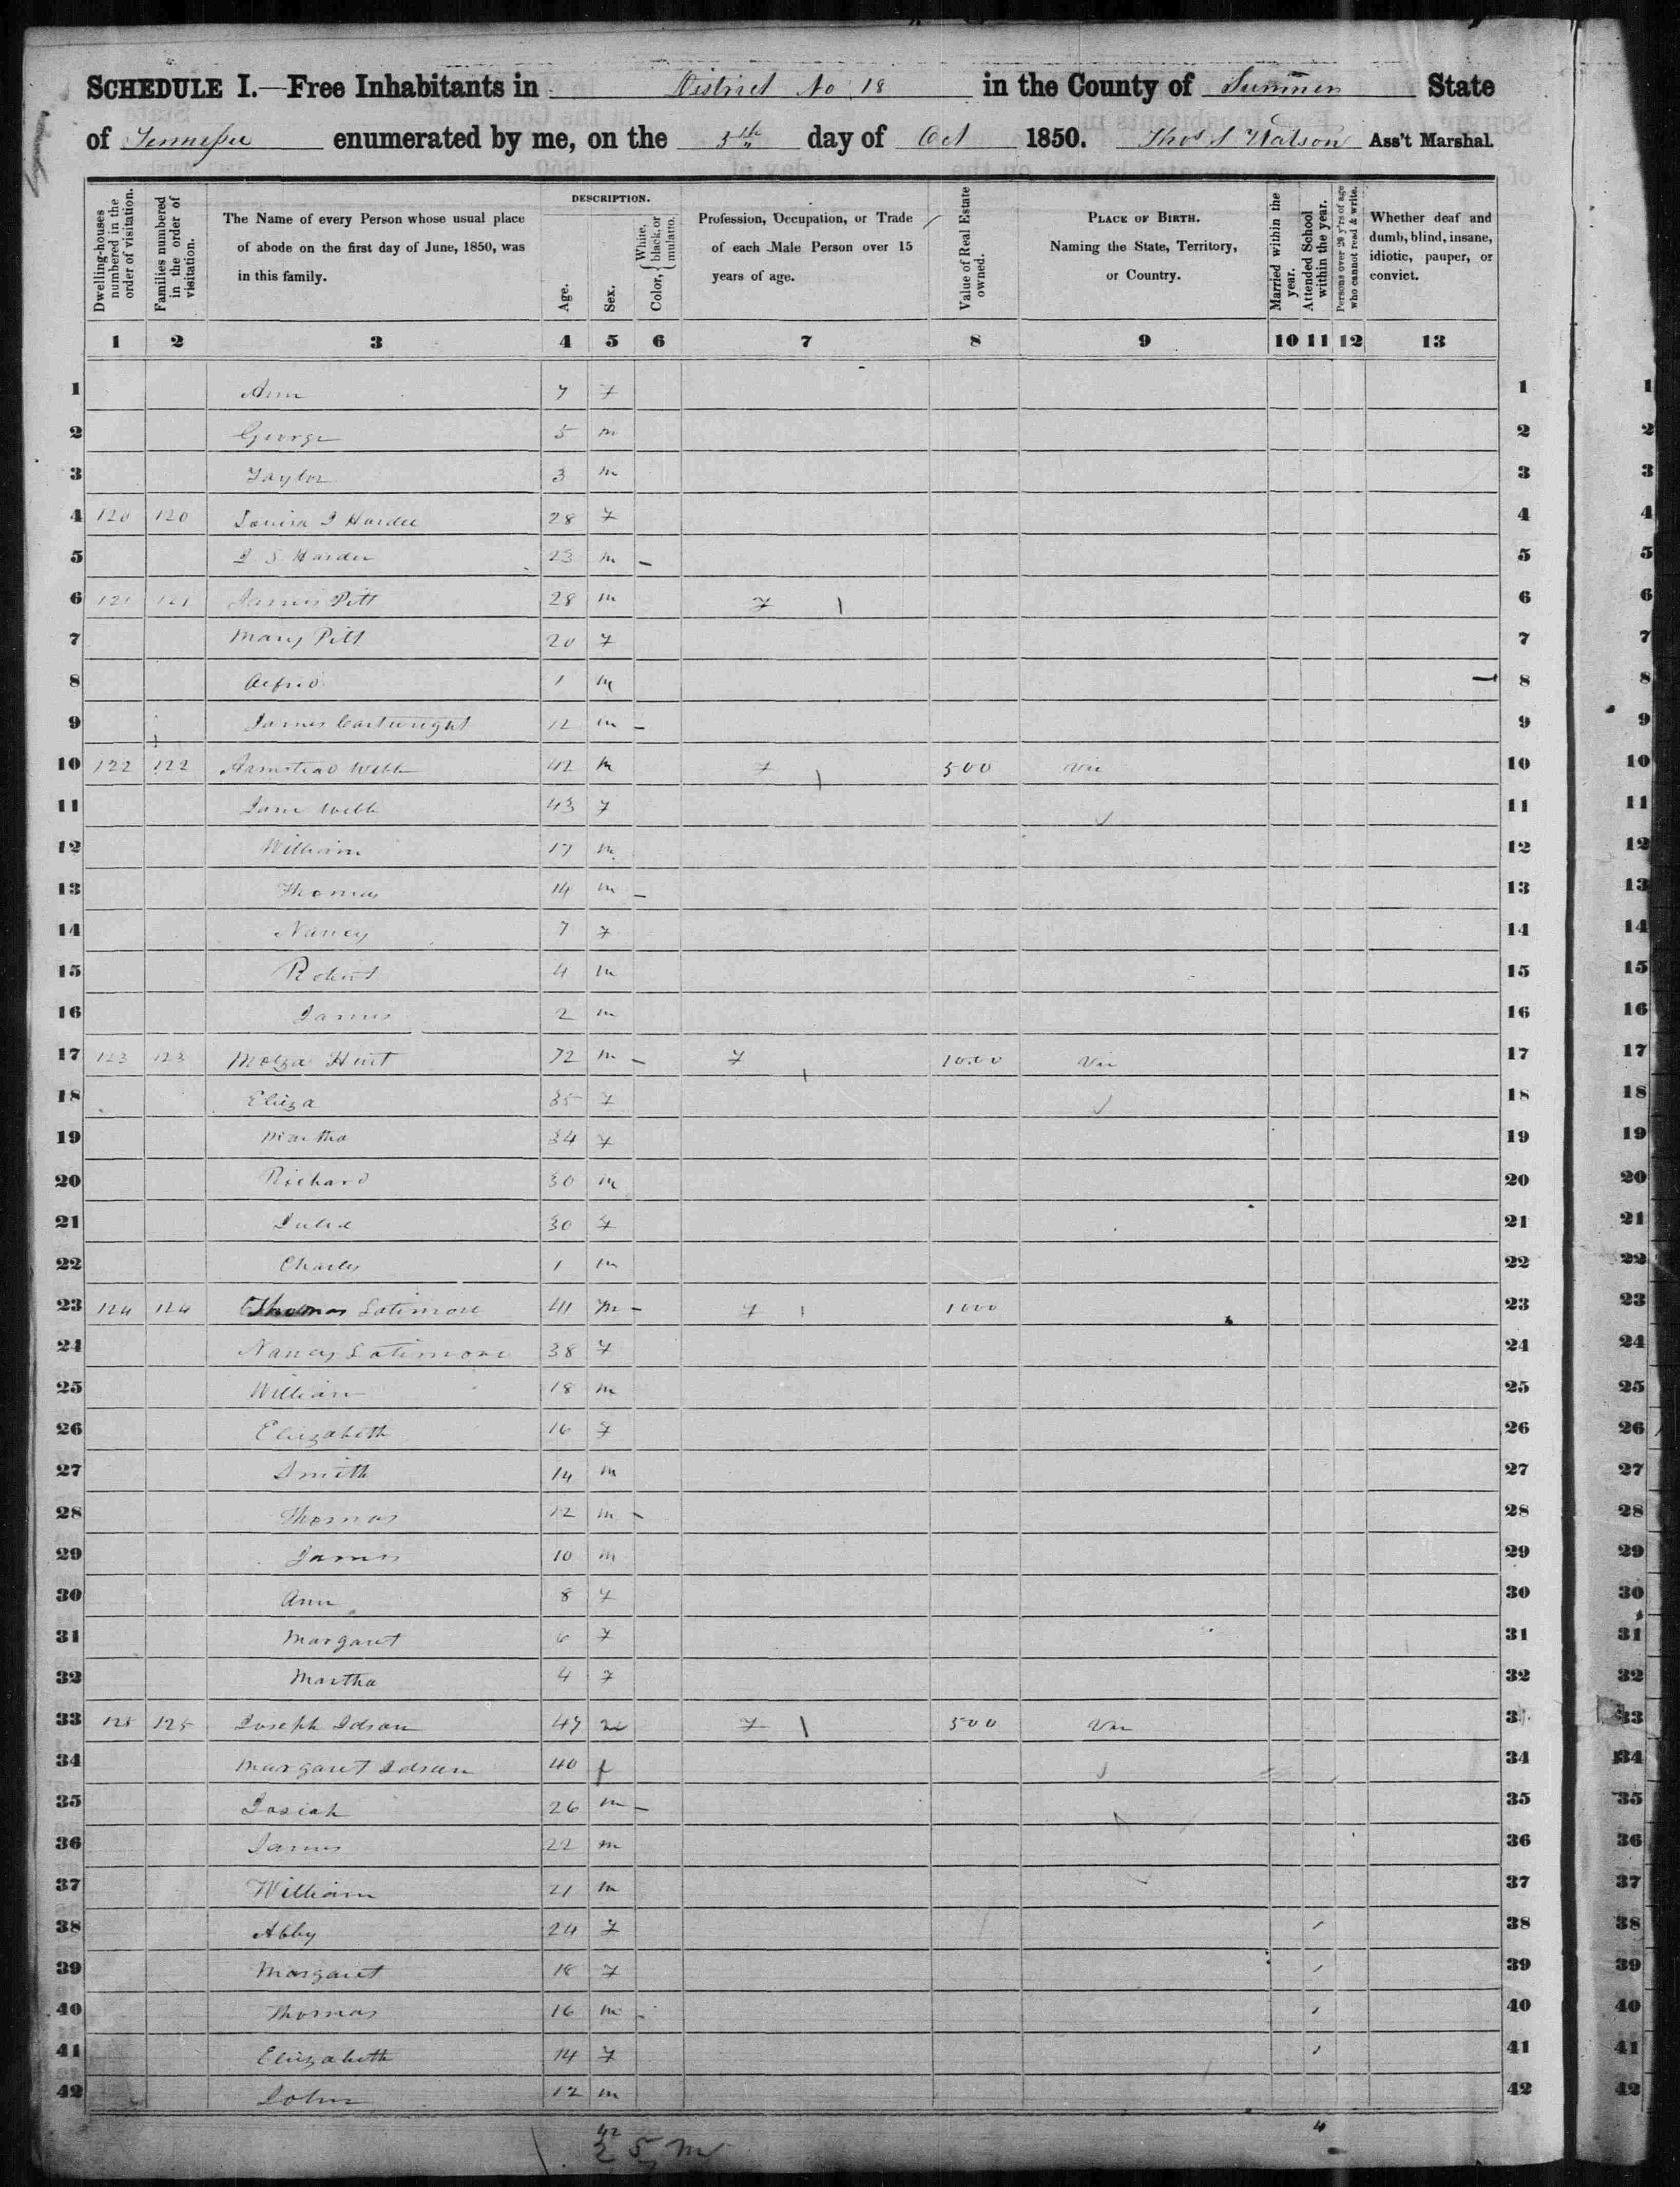 SCHEDULE I.—Free Inhabitants in District No 18 in the County of Sumner State
of Tennessee enumerated by me, on the 5th day of Oct 1850. Thos S Watson Ass't Marshal.
Dwelling-houses numbered in the order of visitation.
Families numbered in the order of visitation.
The Name of every Person whose usual place of abode on the first day of June, 1850, was in this family.
DESCRIPTION.
Age.
Sex.
Color, { White, black, or mulatto.
Profession, Occupation, or Trade of each Male Person over 15 years of age.
Value of Real Estate owned.
PLACE OF BIRTH. Naming the State, Territory, or Country.
Married within the year.
Attended School within the year.
Persons over 20 y'rs of age who cannot read & write.
Whether deaf and dumb, blind, insane, idiotic, pauper, or convict.
1 2 3 4 5 6 7 8 9 10 11 12 13
1 Ann 7 F 1
2 George 5 m 2
3 Taylor 3 m 3
4 120 120 Louisa J Hardee 28 F 4
5 S Hardee 23 m – 5
6 121 121 James Pitt 28 m F 6
7 Mary Pitt 20 F 7
8 Alfrid 1 m 8
9 James Cartwright 12 m – 9
10 122 122 Armstead Webb 42 m F 500 Vir 10
11 Jane Webb 43 F ✓ 11
12 William 17 m 12
13 Thomas 14 m – 13
14 Nancy 7 F 14
15 Robert 4 m 15
16 James 2 m 16
17 123 123 Hunt 72 m – F 1000 Vir 17
18 Eliza 35 F ✓ 18
19 Martha 34 F 19
20 Richard 30 m 20
21 30 F 21
22 Charles 1 m 22
23 124 124 Thomas Latimore 41 m – F 1000 23
24 Nancy Latimore 38 F 24
25 William 18 m 25
26 Elizabeth 16 F 26
27 Smith 14 m 27
28 Thomas 12 m – 28
29 James 10 m 29
30 Ann 8 F 30
31 Margaret 6 F 31
32 Martha 4 F 32
33 125 125 Joseph Idson 47 m F 500 Vir 33
34 Margaret Idson 40 f ✓ 34
35 Josiah 26 m – 35
36 James 22 m 36
37 William 21 m 37
38 Abby 24 F / 38
39 Margaret 18 F / 39
40 Thomas 16 m / 40
41 Elizabeth 14 F / 41
42 John 12 m 42
42 4
25 m